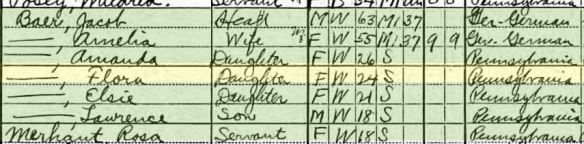 Posey, Mildred Servant F B 34 Pennsylvania
Baer, Jacob Head M W 63 M1 37 Ger-German
——, Amelia Wife F W 55 M1 37 9 9 Ger-German
——, Amanda Daughter F W 26 S Pennsylvania
——, Flora Daughter F W 24 S Pennsylvania
——, Elsie Daughter F W 21 S Pennsylvania
——, Lawrence Son M W 18 S Pennsylvania
Merhant Rosa Servant F W 18 S Pennsylvania